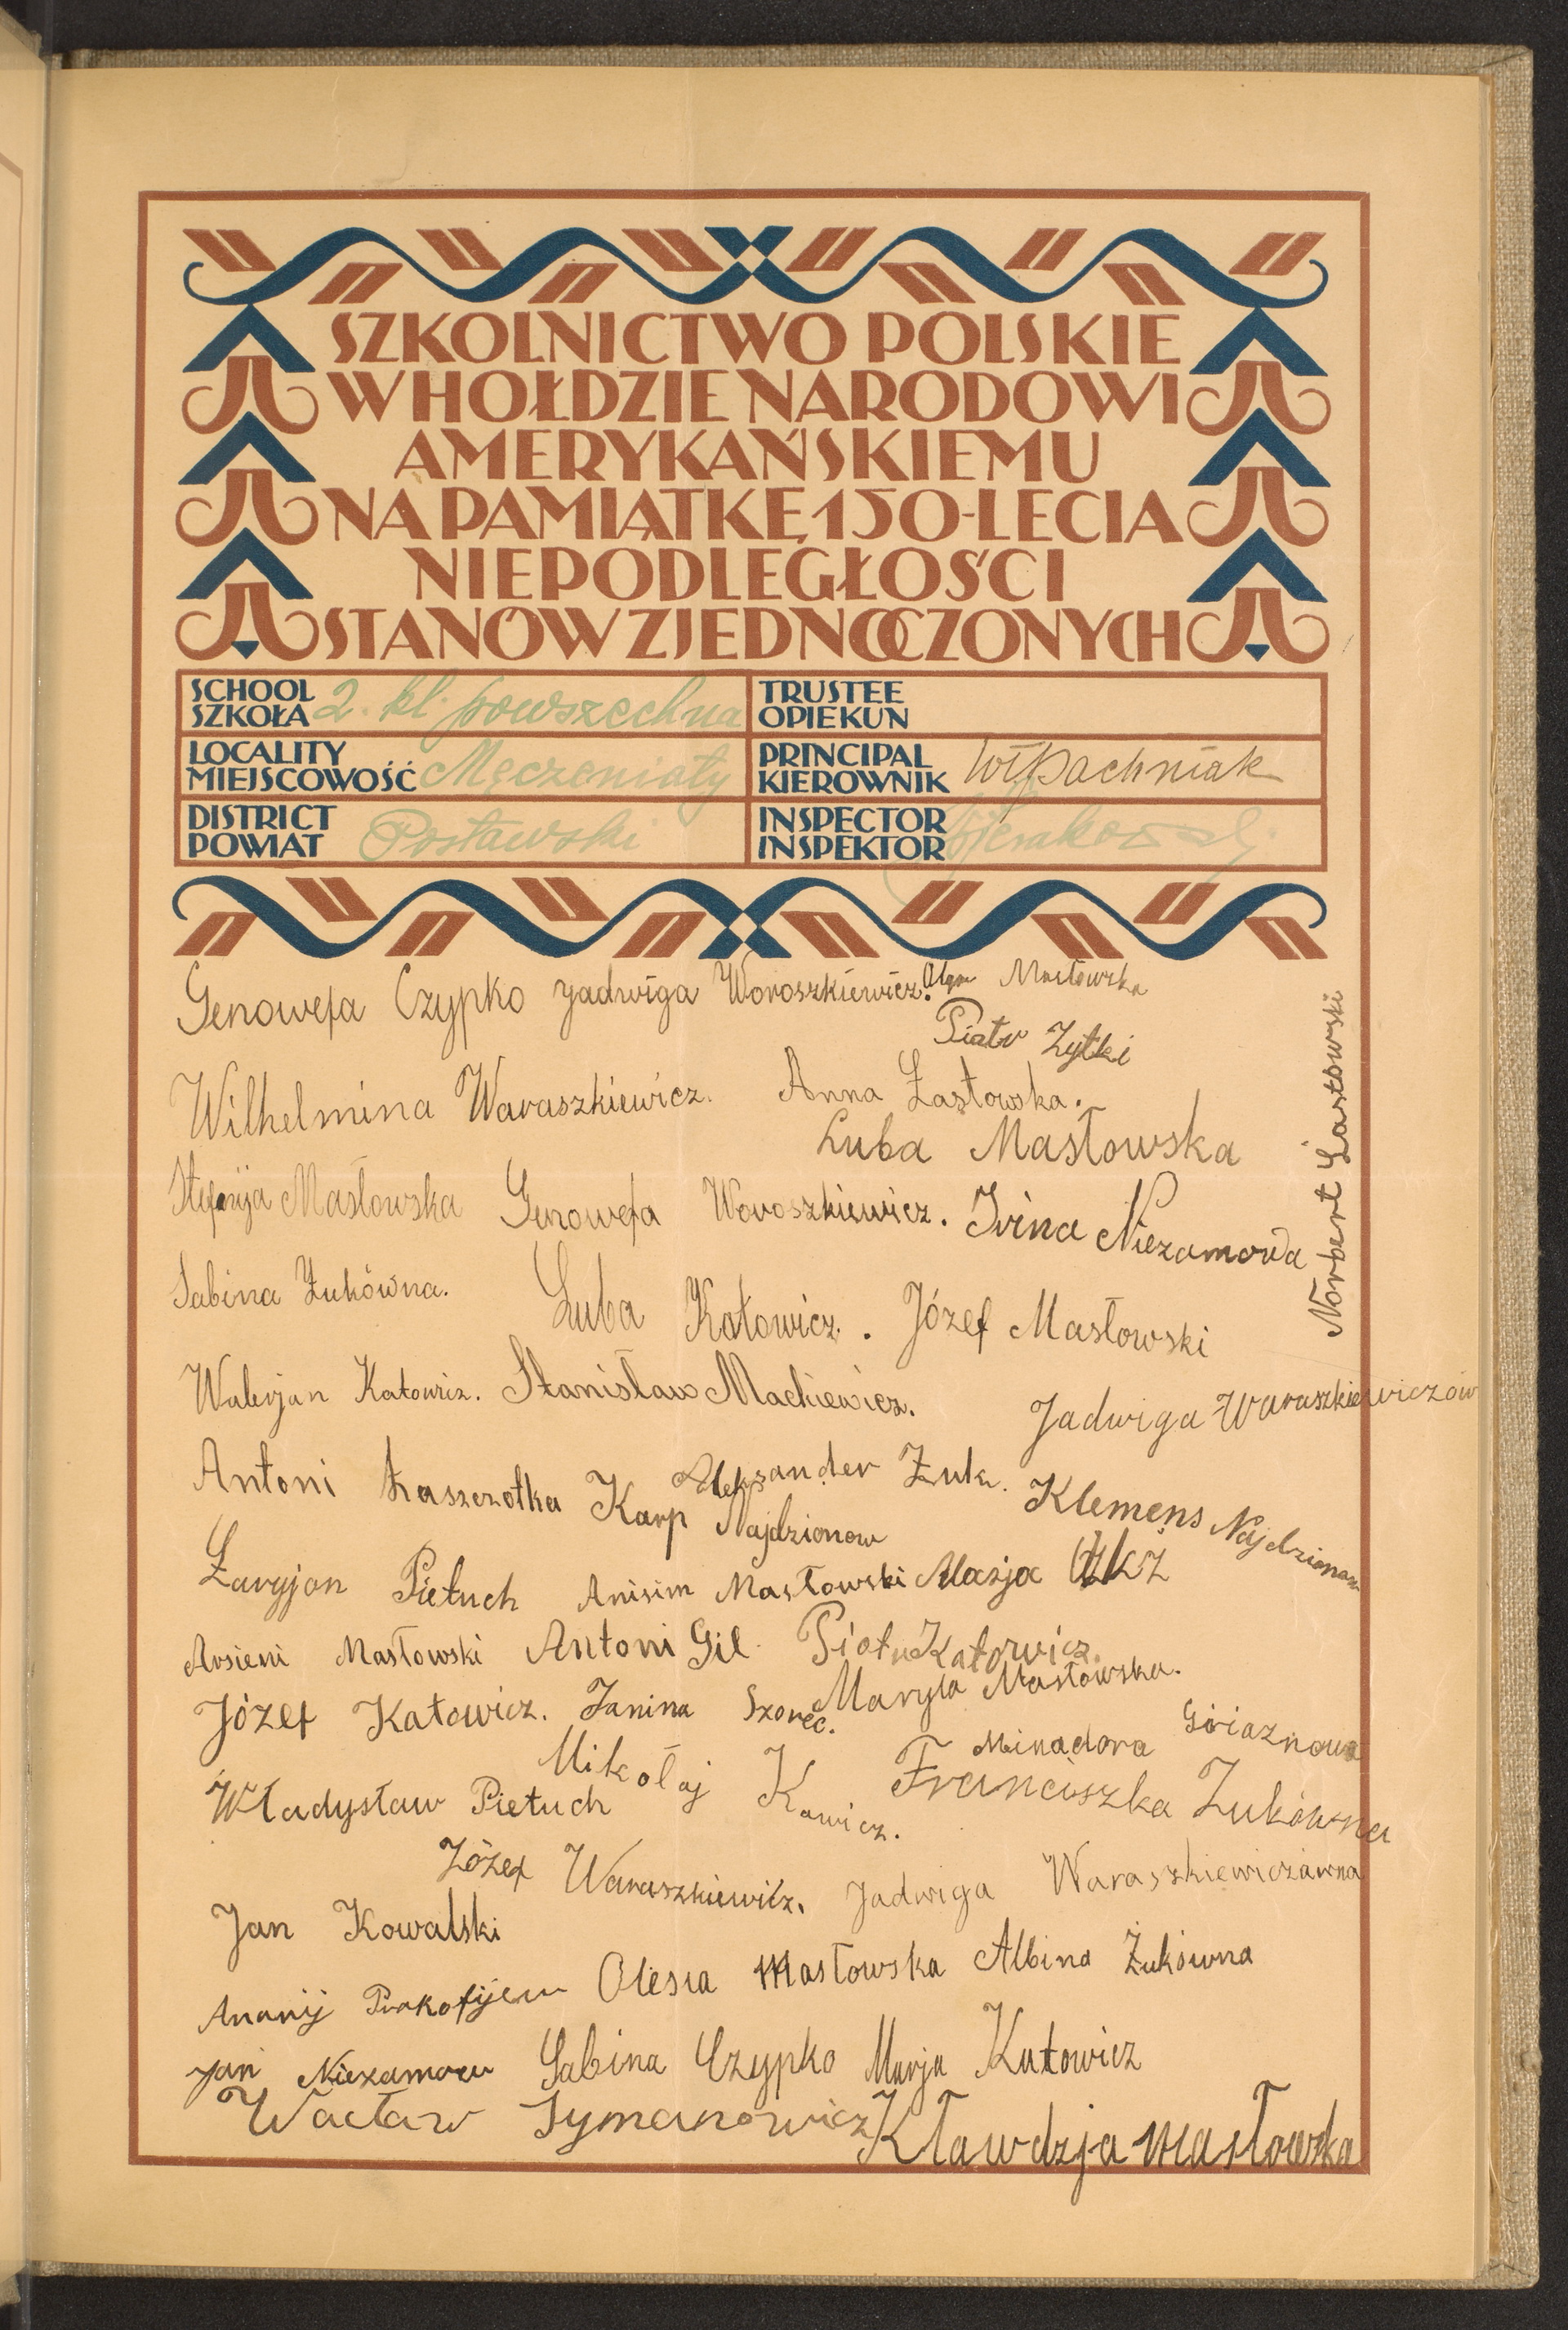 SZKOLNICTWO POLSKIE
W HOŁDZIE NARODOWI
AMERYKAŃSKIEMU
NA PAMIĄTKĘ 150-LECIA
NIEPODLEGŁOŚCI
STANÓW ZJEDNOCZONYCH
SCHOOL
SZKOŁA 2. kl. powszechna
TRUSTEE
OPIEKUN
LOCALITY
MIEJSCOWOŚĆ Męczeniaty
PRINCIPAL
KIEROWNIK Wł Pachniak
DISTRICT
POWIAT Postawski
INSPECTOR
INSPEKTOR
Genowefa Czypko Jadwiga Woroszkiewicz. Olga Masłowska
Piotr Zytki
Wilhelmina Waraszkiewicz. Anna Łastowska.
Luba Masłowska
Norbert Łastowski
Stefanja Masłowska Genowefa Woroszkiewicz. Irina Niezamowa
Sabina Żukówna. Luba Katowicz. Józef Masłowski
Walerjan Katowicz. Stanisław Mackiewicz.
Jadwiga Waraszkiewiczów
Antoni Łaszczotka Karp Najdzionow
Aleksander Żuk. Klemens Najdzionow
Łaryjon Pietuch Anisim Masłowski Marja
Arsieni Masłowski Antoni Gil. Piotr Katowicz.
Józef Katowicz. Janina Szorec. Maryla Masłowska.
Minadora Griaznowa
Władysław Pietuch Mikołaj Kawicz. Franciszka Żukówna
Józef Waraszkiewicz. Jadwiga Waraszkiewiczówna
Jan Kowalski
Ananij Prokofijew Olesia Masłowska Albina Żukówna
Jan Niezamow Sabina Czypko Marja Katowicz
Wacław Symanowicz Kławdzja Masłowska